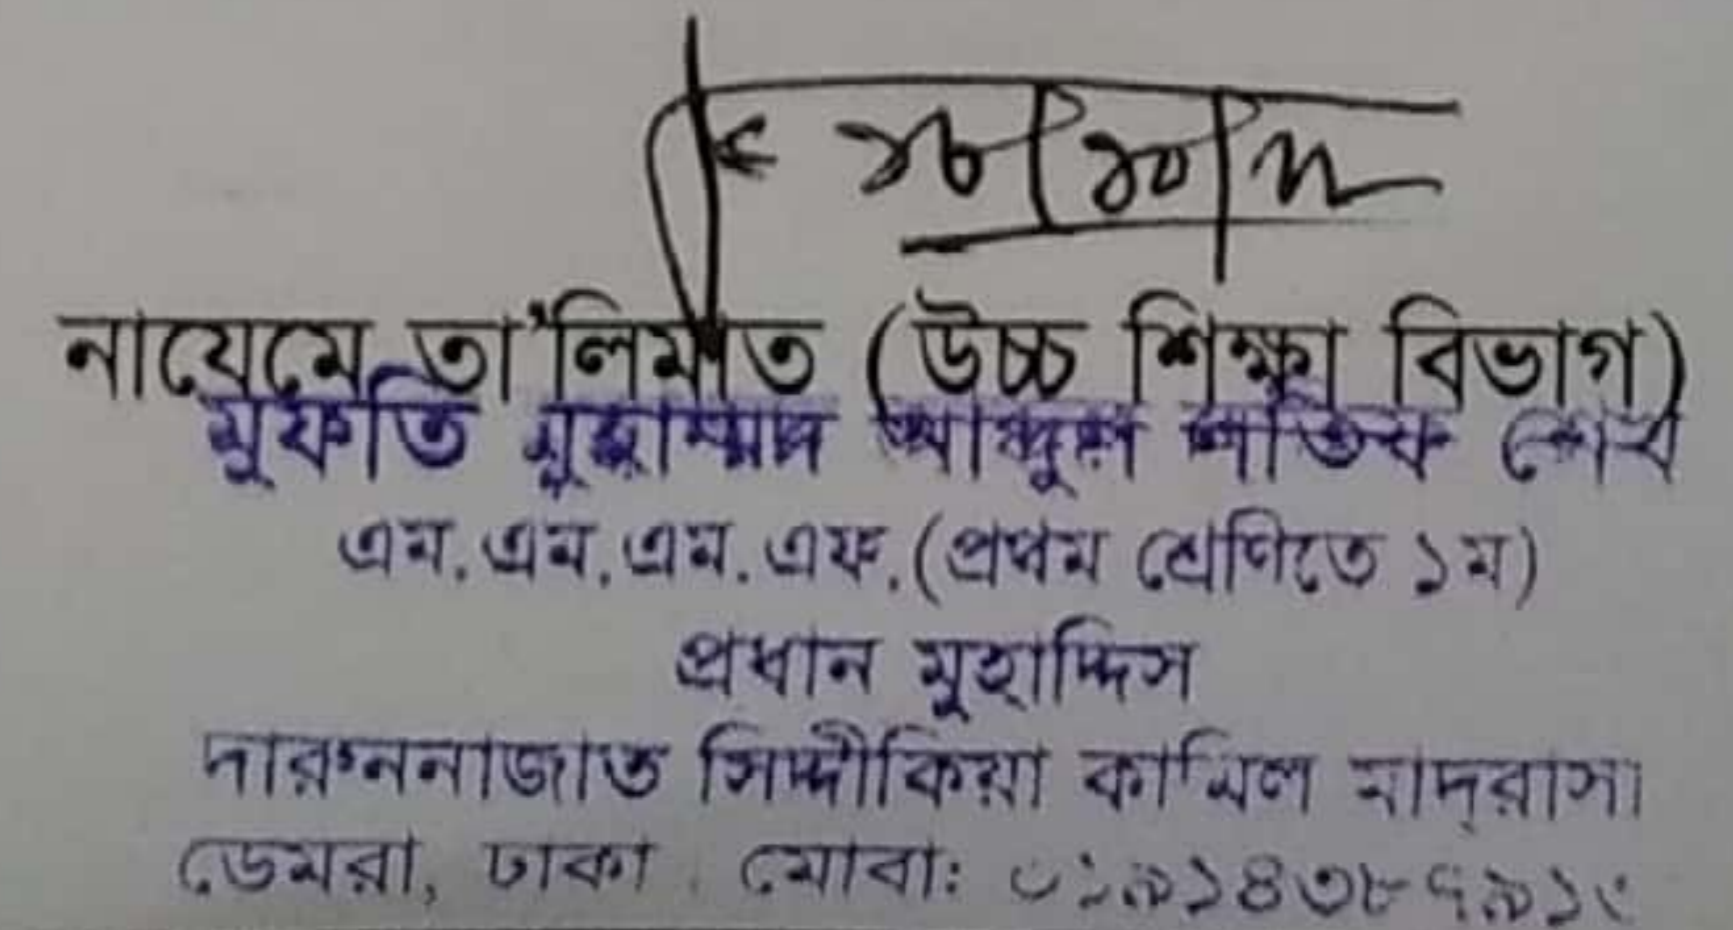 নায়েমে তা'লিমাত (উচ্চ শিক্ষা বিভাগ)
মুফতি মুহাম্মদ আব্দুল লতিফ শেখ
এম.এম.এম.এফ.(প্রথম শ্রেণিতে ১ম)
প্রধান মুহাদ্দিস
দারুননাজাত সিদ্দীকিয়া কামিল মাদ্‌রাসা
ডেমরা, ঢাকা। মোবা: